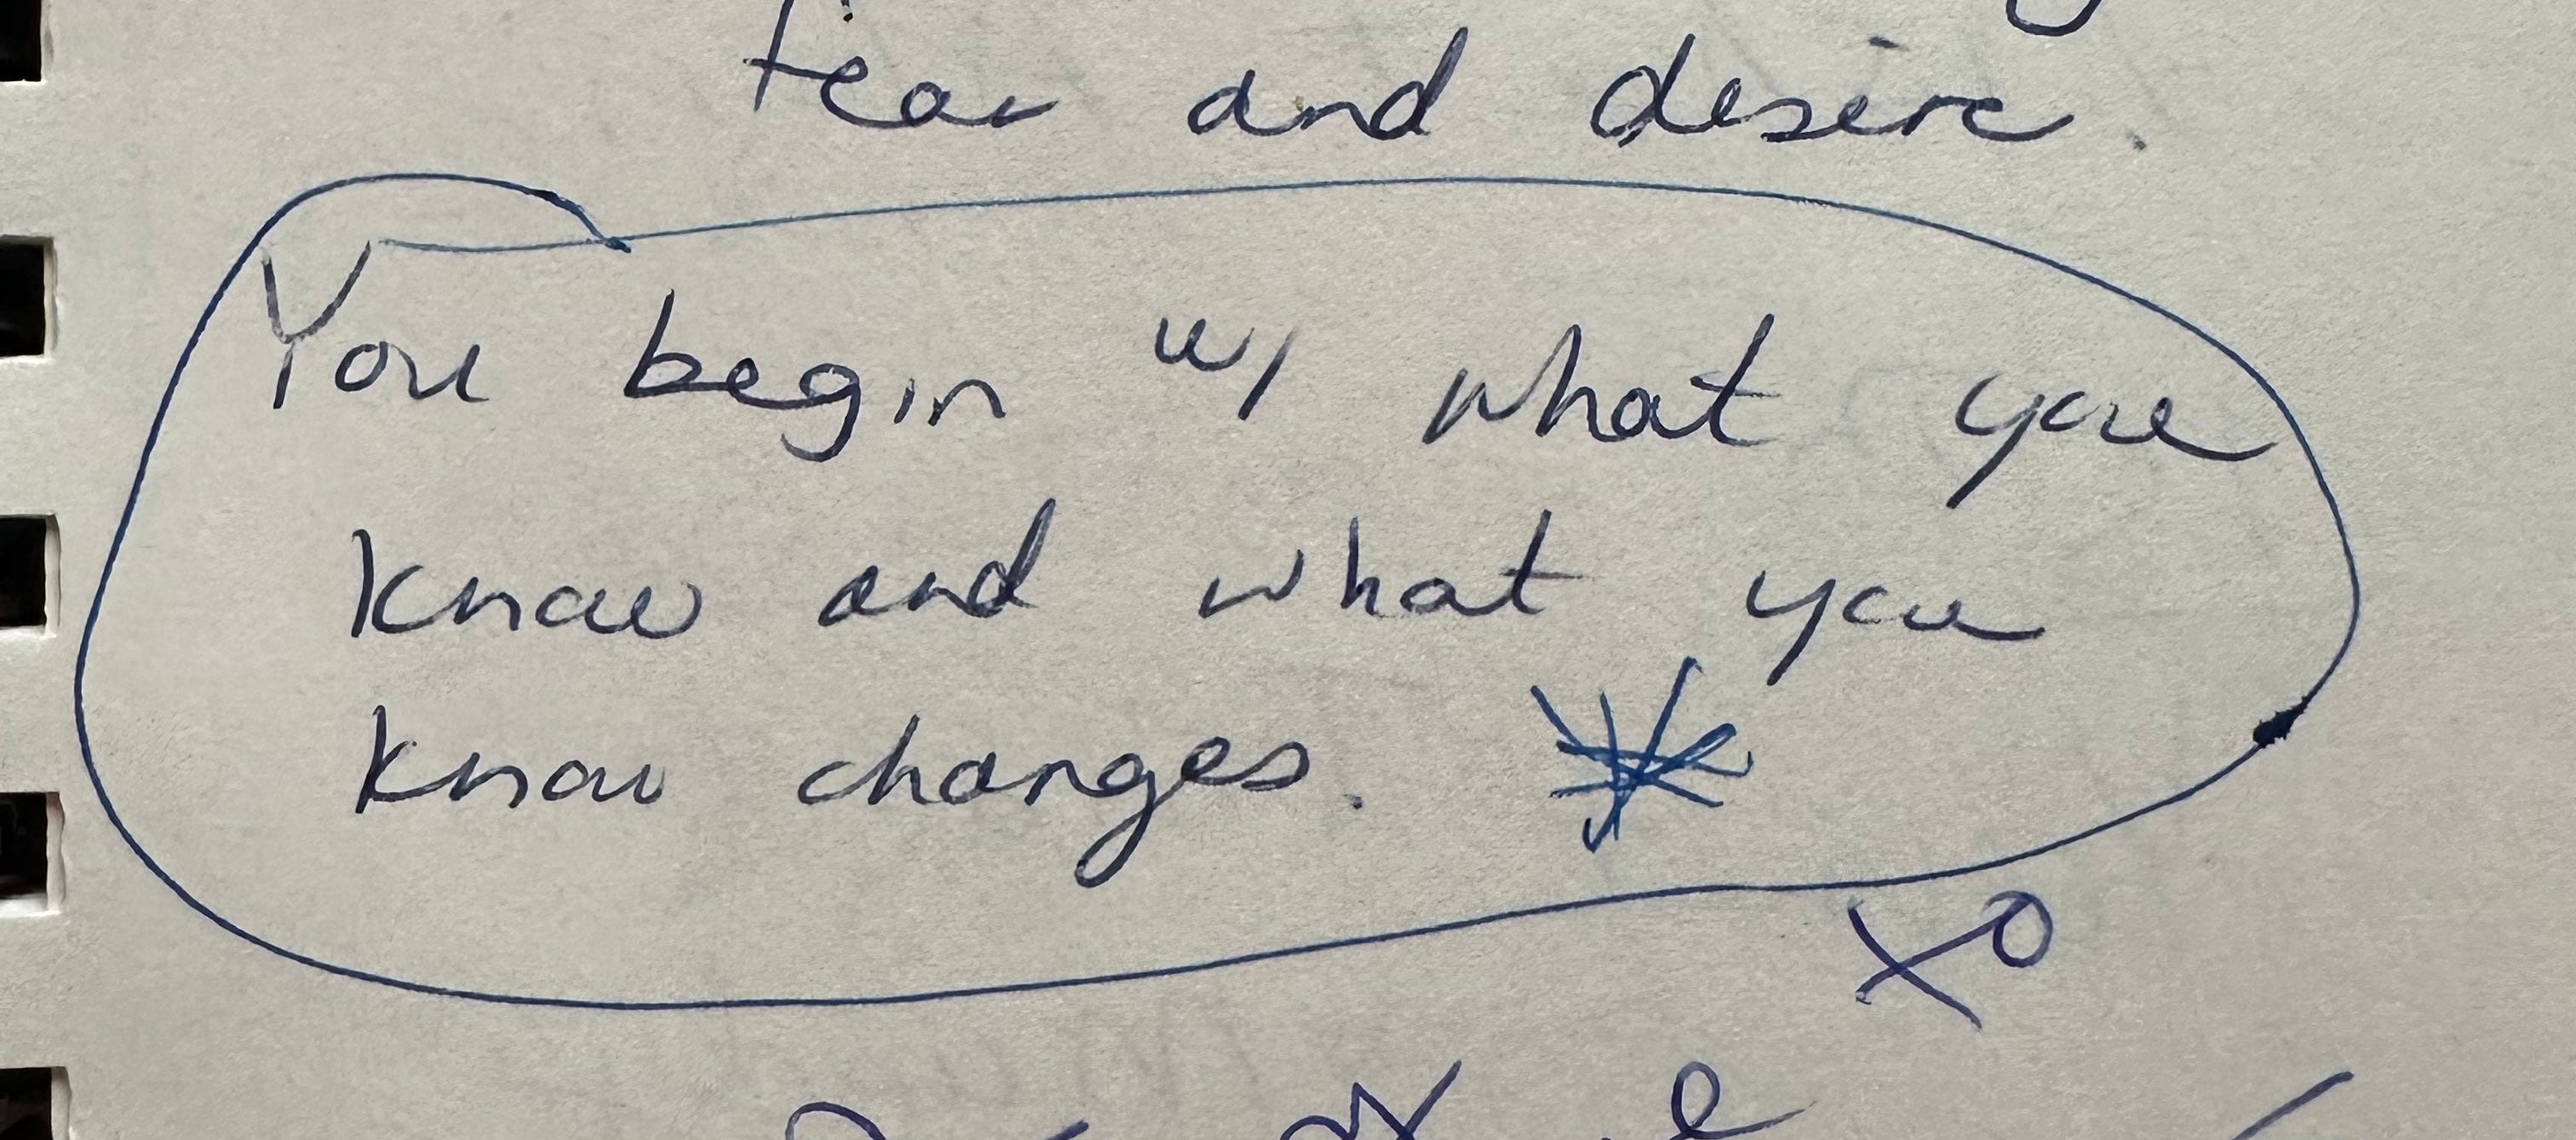 fear and desire.
You begin w/ what you
know and what you
know changes.
XO